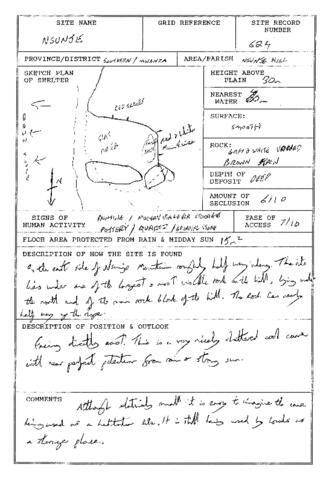 SITE NAME
NSUNJE
GRID REFERENCE
SITE RECORD NUMBER
624
PROVINCE/DISTRICT SOUTHERN / MWANZA
AREA/PARISH NSUNJE HILL
SKETCH PLAN OF SHELTER
red & white
N
HEIGHT ABOVE PLAIN 30m
NEAREST WATER
SURFACE:
smooth
ROCK:
GREY & WHITE
BROWN
DEPTH OF DEPOSIT DEEP
AMOUNT OF SECLUSION 6/10
SIGNS OF HUMAN ACTIVITY
POTTERY / QUARTZ / GRINDING STONE
EASE OF ACCESS 7/10
FLOOR AREA PROTECTED FROM RAIN & MIDDAY SUN 15m2
DESCRIPTION OF HOW THE SITE IS FOUND
the east side of Nsunje Mountain roughly half way along. The site
lies under one of the largest & most visible rocks on the hill, lying under
the north end of the main rock block of the hill. The rock lies nearly
half way up the slope.
DESCRIPTION OF POSITION & OUTLOOK
Facing directly east. This is a very nicely sheltered cool cave
with near perfect protection from rain or strong sun.
COMMENTS
Although relatively small it is easy to imagine the cave
being used as a habitation site. It is still being used by locals as
a storage place.